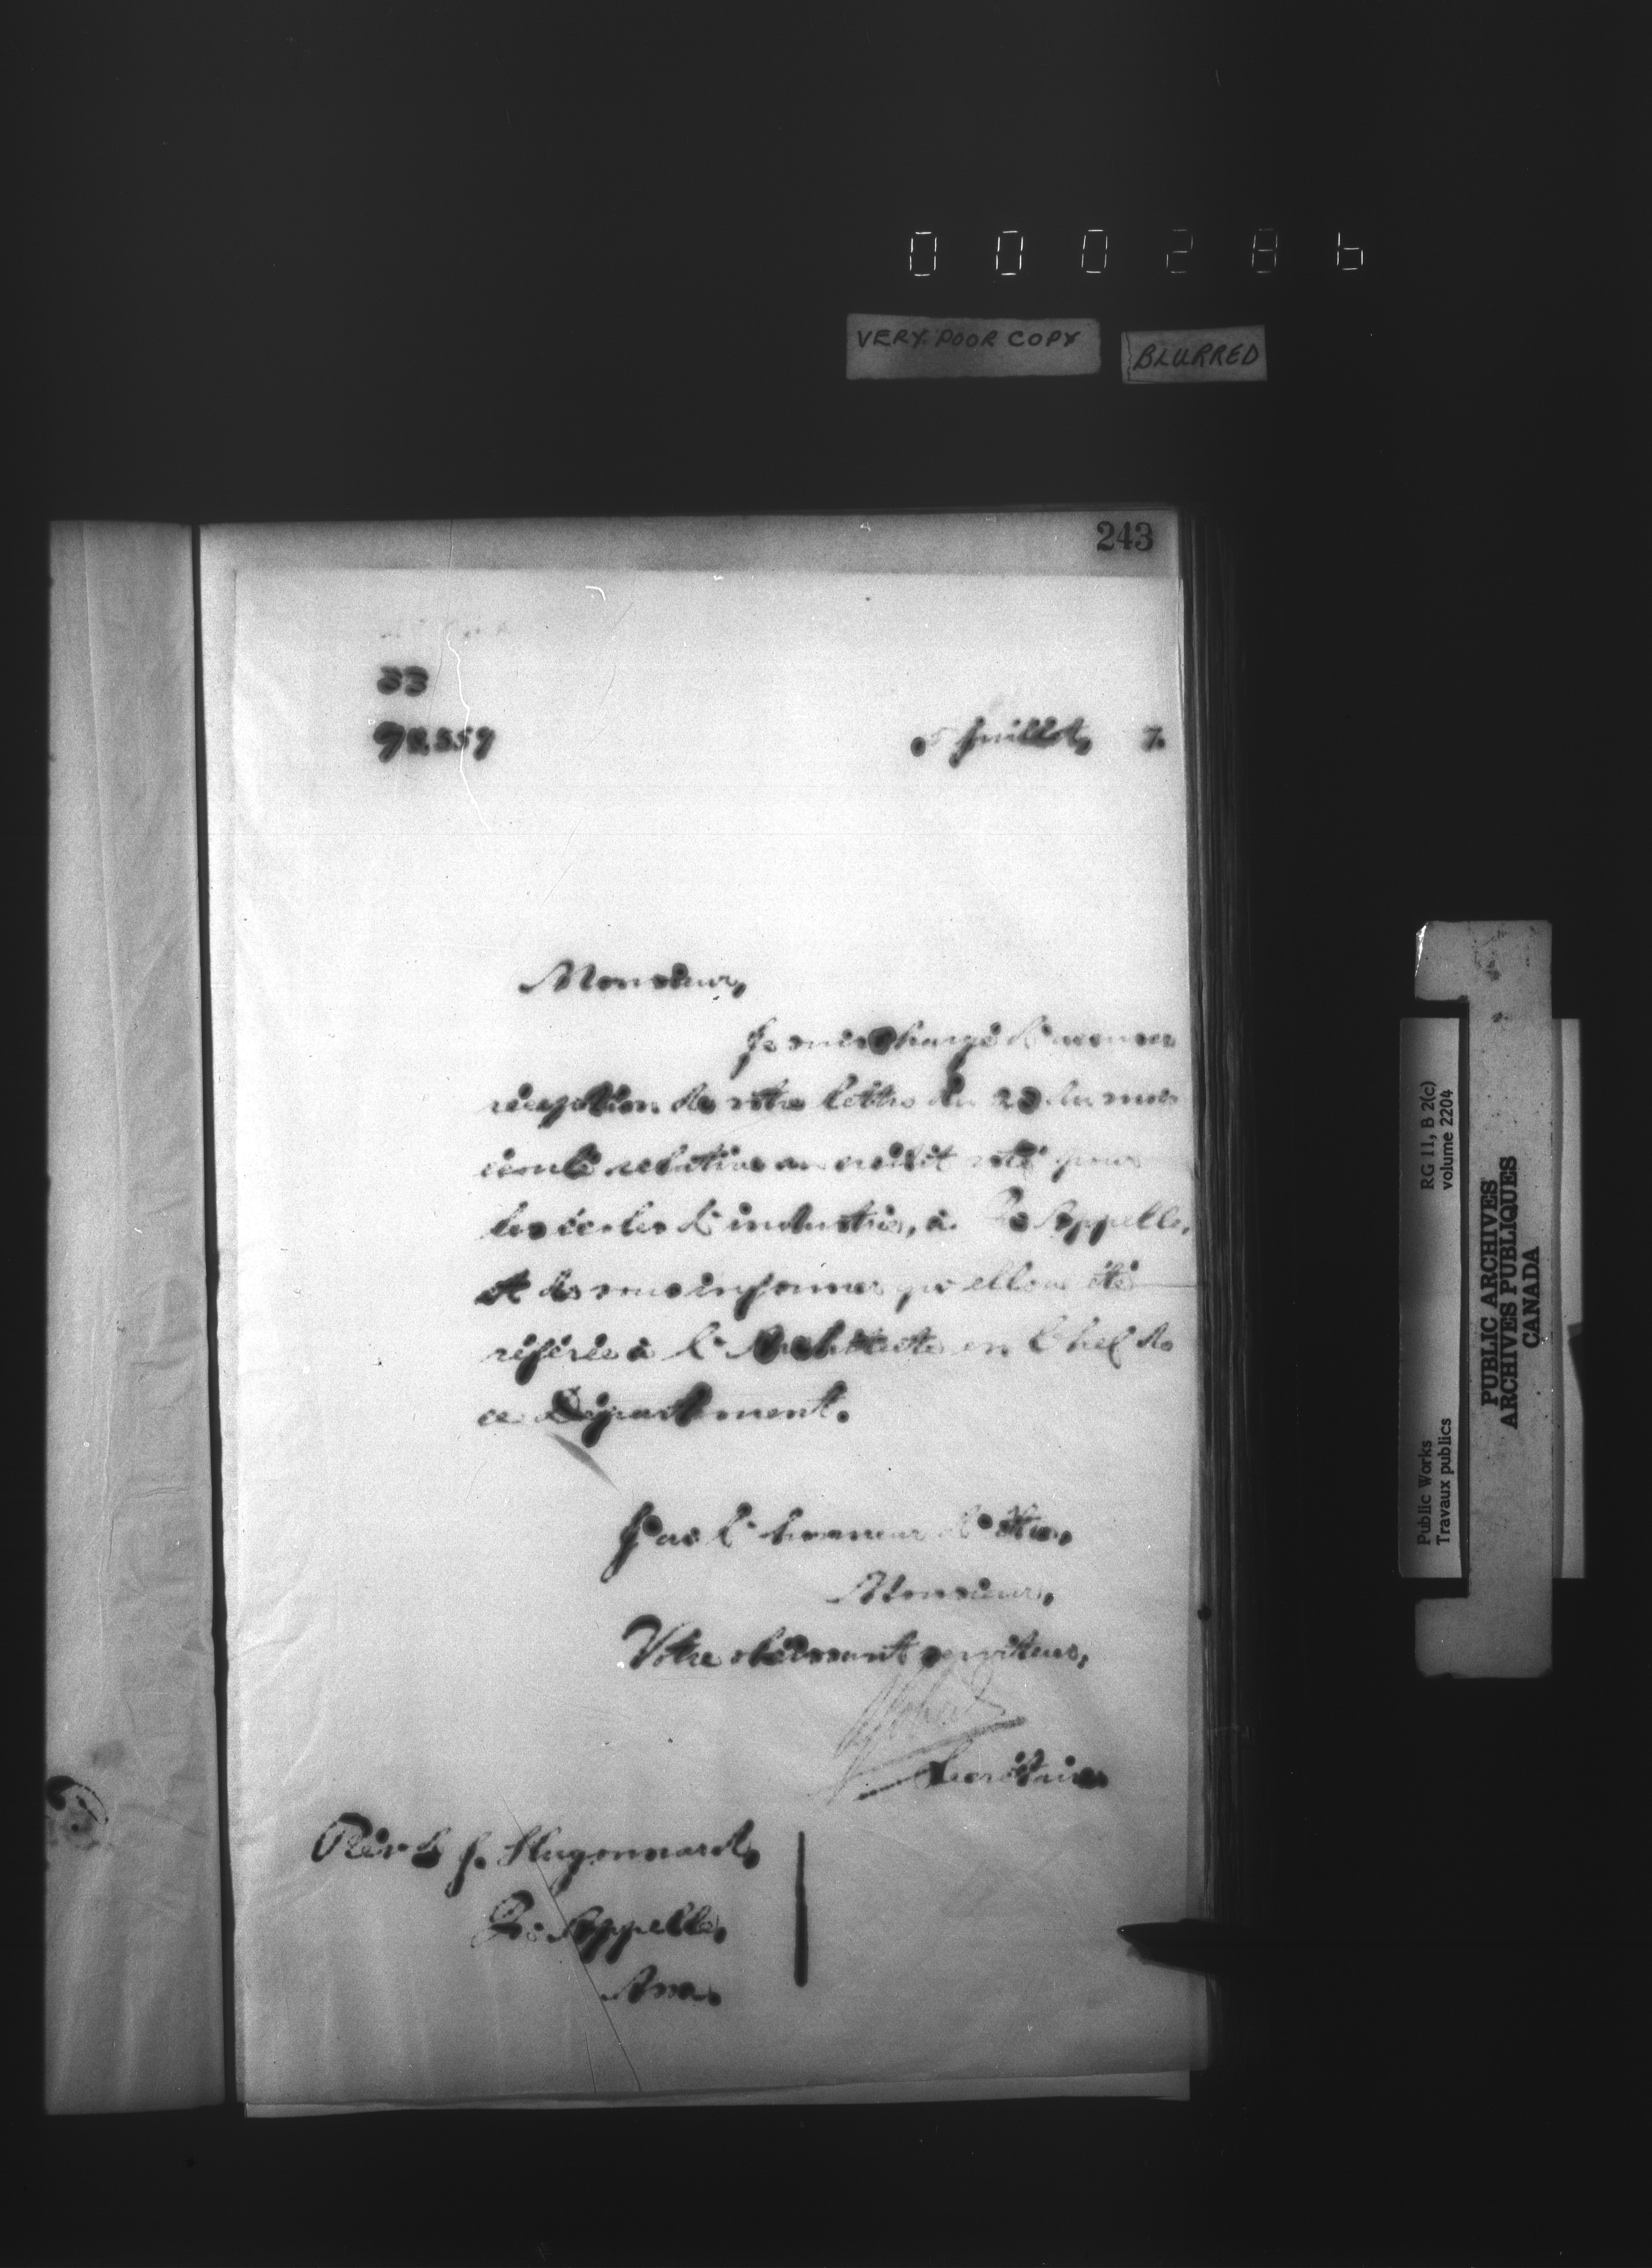 000286
VERY POOR COPY
BLURRED
243
33
78,559
5 Juillet, 7.
Monsieur,
Je suis chargé d'accuser
réception de votre lettre du 23 du mois
écoulé relative au crédit voté pour
les écoles d'industrie, à Qu'Appelle,
et de vous informer qu'elle a été
référée à l'Architecte en Chef de
ce Département.
J'ai l'honneur d'être,
Monsieur,
Votre obéissant serviteur,
Secrétaire
Rév. J. Hugonnard,
Qu'Appelle,
Assa.
Public Works
Travaux publics
RG 11, B 2(c)
volume 2204
PUBLIC ARCHIVES
ARCHIVES PUBLIQUES
CANADA